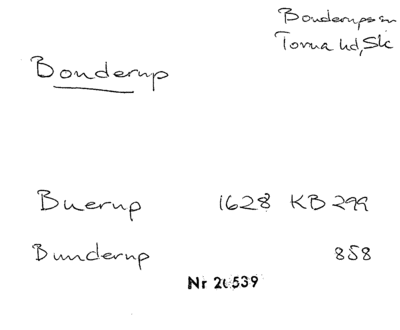 Bonderups sn
Torna hd, Sk
Bonderup
Buerup 1628 KB 299
Bunderup 858